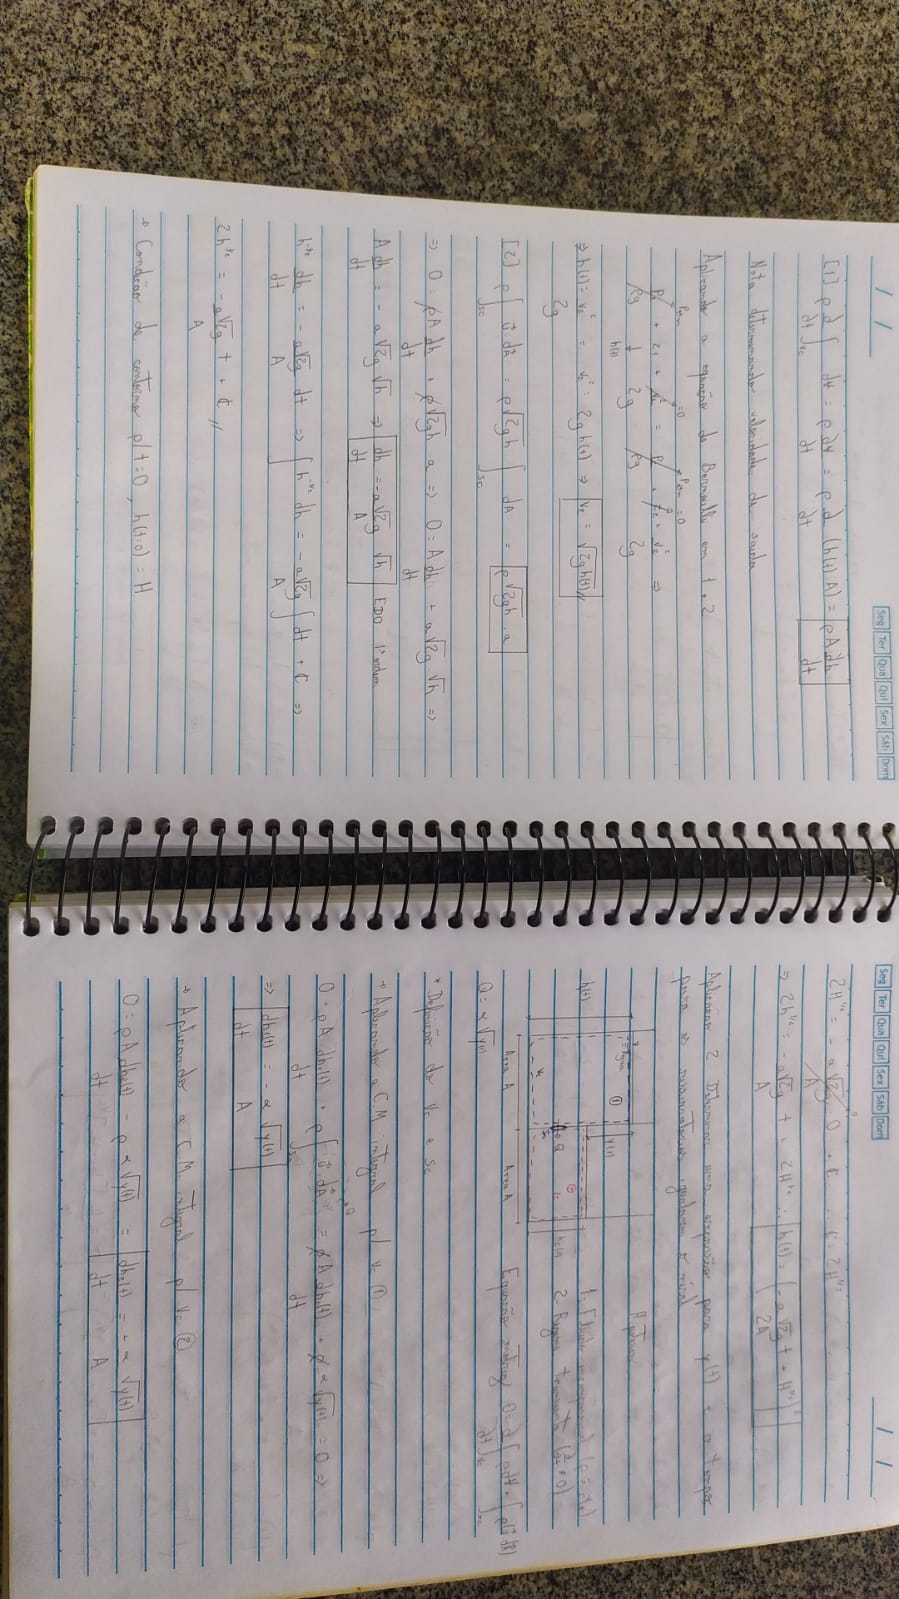 / /
Seg Ter Qua Qui Sex Sáb Dom
[1] ρ d/dt ∫vc dV = ρ dV/dt = ρ d/dt (h(t).A) = ρA dh/dt
Nota: determinando velocidade de saída
Aplicando a equação de Bernoulli em 1 e 2
⇒ h(t) = v₂²/2g = v₂² = 2gh(t) ⇒ v₂ = √2gh(t) //
[2] ρ ∫sc v⃗.dA⃗ = ρ√2gh ∫sc dA = ρ√2gh . a
⇒ 0 = ρA dh/dt + ρ√2gh a ⇒ 0 = A dh/dt + a√2g √h ⇒
A dh/dt = - a√2g √h ⇒ dh/dt = -a√2g/A √h EDO 1ª ordem
h^-1/2 dh/dt = - a√2g/A dt ⇒ ∫ h^-1/2 dh = - a√2g/A ∫ dt + C ⇒
2h^1/2 = - a√2g/A t + C //
→ Condição de contorno p/ t=0, h(t=0) = H
Seg Ter Qua Qui Sex Sáb Dom
/ /
2H^1/2 = - a√2g/A . 0 + C ∴ C = 2H^1/2
⇒ 2h^1/2 = - a√2g/A t + 2H^1/2 ∴ h(t) = (- a√2g/2A t + H^1/2)²
Aplicação 2 Determinar uma expressão para y(t) e o tempo
para os reservatórios igualarem o nível
h₁(t)
①
y(t)
Q
②
h₂(t)
Área A
Área A
Q = α √y(t)
* Definição do Vc e Sc
→ Aplicando a C.M. integral p/ Vc ①
0 = ρA dh₁(t)/dt + ρ ∫sc v⃗.dA⃗ = ρA dh₁(t)/dt + ρ α √y(t) = 0 ⇒
⇒ dh₁(t)/dt = - α/A √y(t)
→ Aplicando a C.M. integral p/ Vc ②
0 = ρA dh₂(t)/dt - ρ α √y(t) = dh₂(t)/dt = + α/A √y(t)